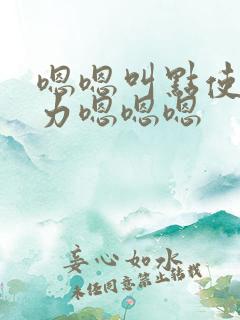 嗯嗯叫點使
力嗯嗯嗯
妾心如水
未经同意禁止转载